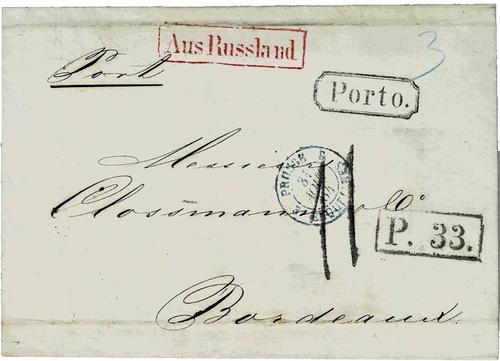 Aus Russland
3
Port
Porto.
Messieurs
PRUSSE
Clossmann & Co
P. 33.
Bordeaux.